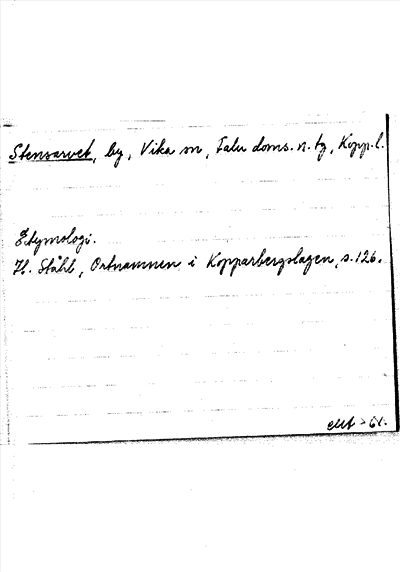 Stensarvet, by, Vika sn, Falu doms. n. tg, Kopp. l.
Etymologi.
H. Ståhl, Ortnamnen i Kopparbergslagen, s. 126.